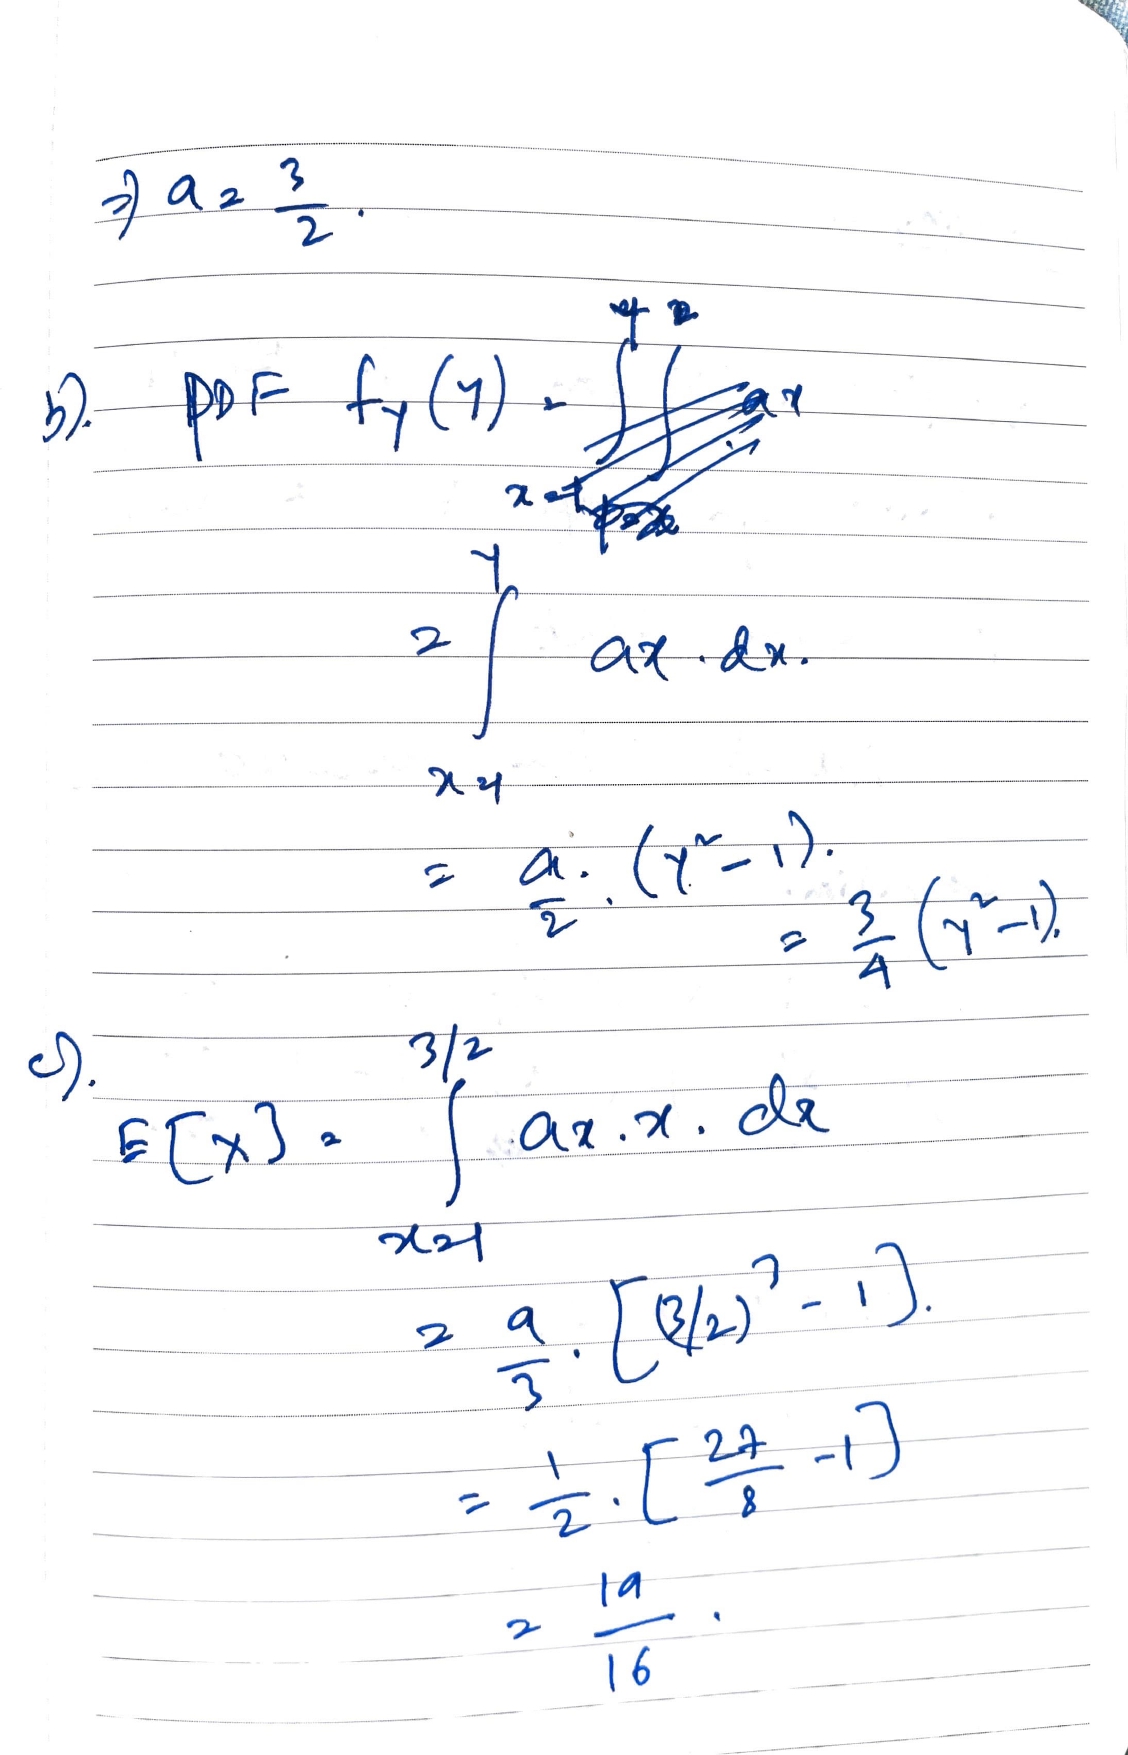 ⇒ a = 3/2 .
b). PDF f_Y(y) =
= ∫_{x=1}^{y} ax . dx.
= a/2 . (y² - 1).
= 3/4 (y² - 1).
c).
E[X] = ∫_{x=1}^{3/2} ax . x . dx
= a/3 . [(3/2)³ - 1].
= 1/2 . [27/8 - 1]
= 19/16 .